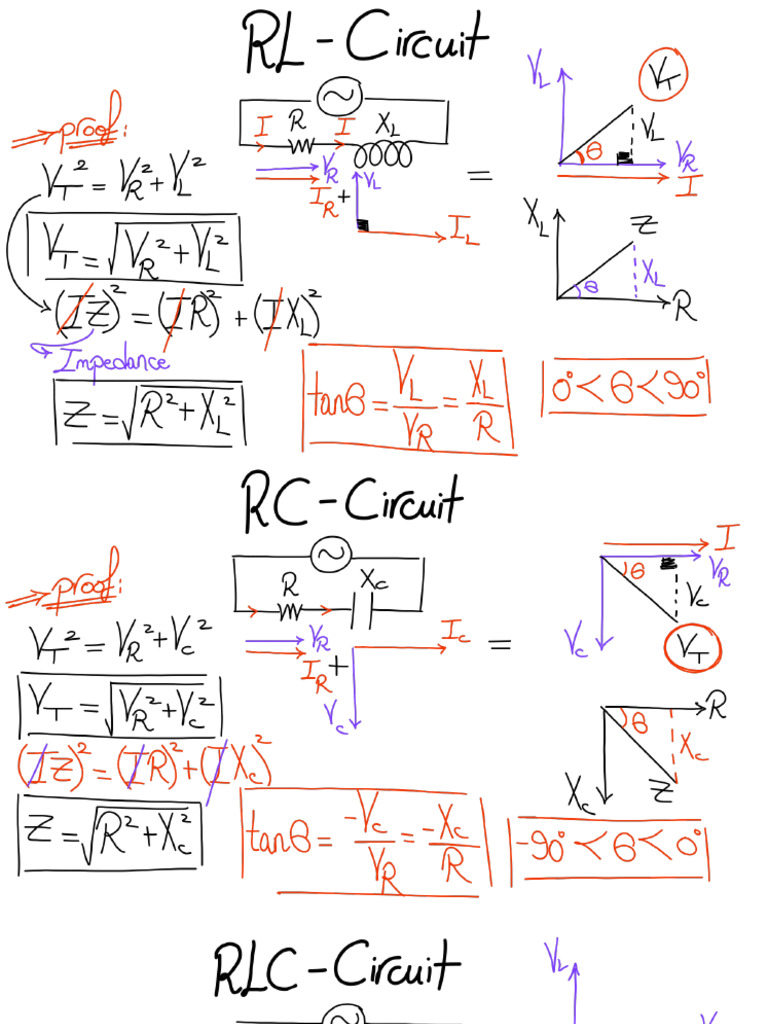 RL-Circuit
⇒ proof:
V_T² = V_R² + V_L²
V_T = √(V_R² + V_L²)
(IZ)² = (IR)² + (IX_L)²
Impedance
Z = √(R² + X_L²)
I R I X_L
V_R
I_R +
V_L
I_L
=
V_L V_T
V_L
θ
V_R
I
X_L Z
X_L
θ
R
tanθ = V_L/V_R = X_L/R
0° < θ < 90°
RC-Circuit
⇒ proof:
V_T² = V_R² + V_c²
V_T = √(V_R² + V_c²)
(IZ)² = (IR)² + (IX_c)²
Z = √(R² + X_c²)
R X_c
V_R
I_R +
I_c
V_c
=
I
θ V_R
V_c
V_c V_T
R
θ
X_c
X_c Z
tanθ = -V_c/V_R = -X_c/R
-90° < θ < 0°
RLC-Circuit
V_L